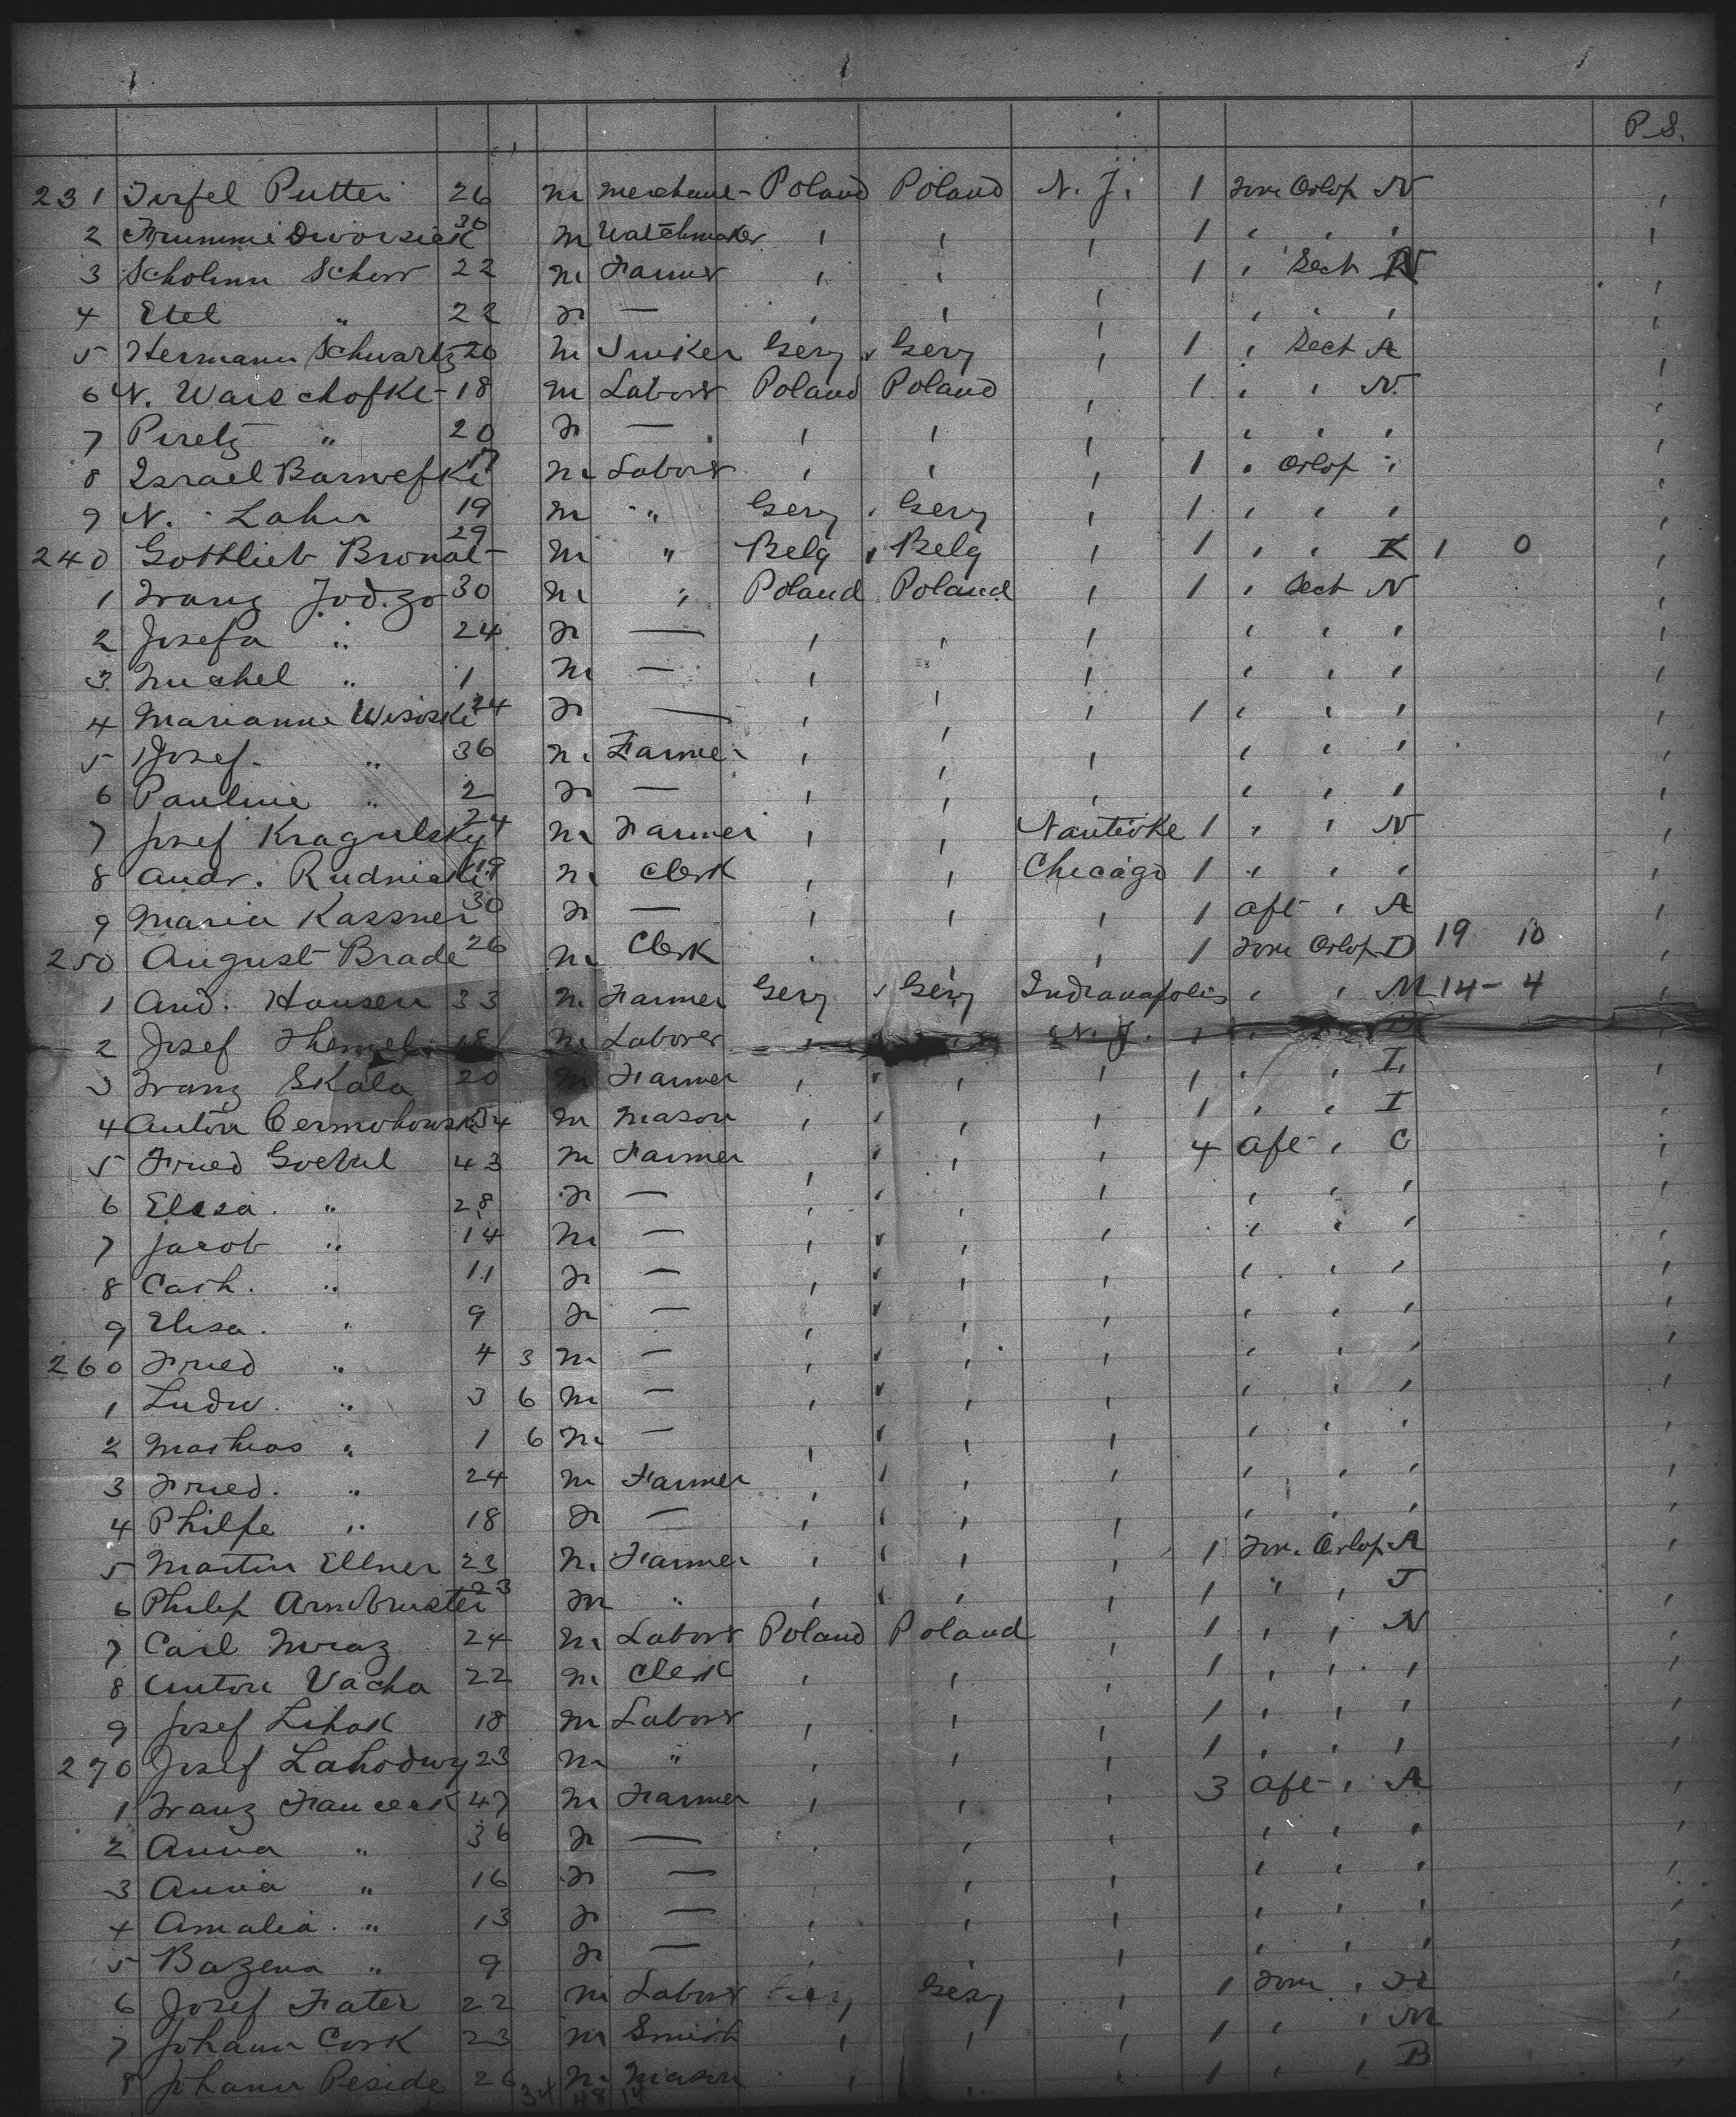 P. S.
231 Putter 26 m Merchant - Poland Poland N. J. 1 Orlop N
2 30 m Watchmaker ' ' ' 1 ' ' '
3 Scholinn Scherr 22 m Farmer ' ' ' 1 ' Sect N
4 Etel " 22 — ' ' ' ' ' '
5 Hermann Schwartz 20 m Gery " Gery ' 1 ' Sect A
6 N. Warschofke - 18 m Labour Poland Poland ' 1 ' ' N.
7 Peretz " 20 — ' ' ' ' ' '
8 Israel Barwefki 17 m Labour ' ' ' 1 " Orlop "
9 N. Lahn 19 m " Gery " Gery ' 1 ' ' '
240 Gottlieb Bronat 29 m " Belg " Belg ' 1 ' ' K 1 0
1 Franz Jodzo 30 m " Poland Poland ' 1 ' Sect N
2 Josefa " 24 — ' ' ' ' ' '
3 Michel " 1 m — ' ' ' ' ' '
4 Marianne Wisoski 24 — ' ' ' 1 ' ' '
5 Josef " 36 m Farmer ' ' ' ' ' '
6 Pauline " 2 — ' ' ' ' ' '
7 Josef Kragulsky 24 m Farmer ' ' Nanticke 1 " ' N
8 Andr. Rudnicki 19 m Clerk ' ' Chicago 1 " ' '
9 Maria Kassner 30 — ' ' ' 1 aft ' A
250 August Brade 26 m Clerk ' ' ' 1 Orlop D 19 10
1 And. Hansen 33 m Farmer Gery " Gery Indianapolis ' ' M 14 - 4
2 Josef 18 m Laborer ' ' N. J. 1 '
3 Franz Skala 20 m Farmer ' " ' ' 1 ' ' I.
4 Anton 34 m Mason ' " ' ' 1 ' ' I
5 Fried Goebel 43 m Farmer ' " ' ' 4 aft ' C
6 Elisa. " 28 — ' " ' ' ' ' '
7 Jacob " 14 m — ' " ' ' ' ' '
8 Cath. " 11 — ' " ' ' ' ' '
9 Elisa. " 9 — ' " ' ' ' ' '
260 Fried " 4 3 m — ' " ' ' ' ' '
1 Ludw. " 3 6 m — ' " ' ' ' ' '
2 Mathias " 1 6 m — ' " ' ' ' ' '
3 Fried. " 24 m Farmer ' " ' ' ' ' '
4 Philpe " 18 — ' " ' ' ' ' '
5 Martin Ellner 23 m Farmer ' " ' ' 1 Orlop A
6 Philip Armbruster 23 m " ' " ' ' 1 " ' J
7 Carl Mraz 24 m Labour Poland Poland ' 1 ' ' N
8 Anton Vacha 22 m Clerk ' ' ' 1 ' ' '
9 Josef Lihak 18 m Labour ' ' ' 1 ' ' '
270 Josef Lahodwy 23 m " ' ' ' 1 ' ' '
1 Franz 47 m Farmer ' ' ' 3 aft ' A
2 Anna " 36 — ' ' ' ' ' '
3 Anna " 16 — ' ' ' ' ' '
4 Amalia " 13 — ' ' ' ' ' '
5 Bazena " 9 — ' ' ' ' ' '
6 Josef Fater 22 m Labour Gery Gery ' 1 '
7 Johann Cork 23 m Smith ' ' ' 1 ' ' M
8 Johann Peside 26 m Mason ' ' ' 1 ' ' B